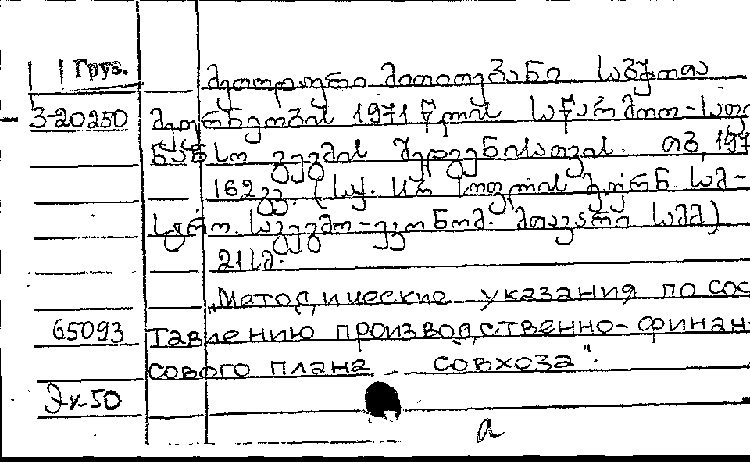 Груз.
მეთოდური მითითებანი საბჭოთა
3-20250 მეურნეობის 1971 წლის საწარმოო-საფი
ნანსო გეგმის შედგენისათვის. თბ, 197
162 გვ. (სქ. სსრ სოფლის მეურნ. სამ-
სტრო. საგეგმო-ეკონომ. მთავარი სამმ.)
21 სმ.
"Методические указания по сос
65093 тавлению производственно-финан
сового плана совхоза".
Эк-50
a